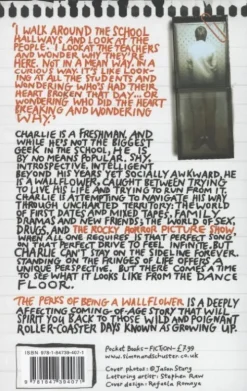 "I WALK AROUND THE SCHOOL
HALLWAYS AND LOOK AT THE
PEOPLE. I LOOK AT THE TEACHERS
AND WONDER WHY THEY'RE
HERE. NOT IN A MEAN WAY. IN A
CURIOUS WAY. IT'S LIKE LOOK-
ING AT ALL THE STUDENTS AND
WONDERING WHO'S HAD THEIR
HEART BROKEN THAT DAY... OR
WONDERING WHO DID THE HEART
BREAKING AND WONDERING
WHY."
CHARLIE IS A FRESHMAN. AND
WHILE HE'S NOT THE BIGGEST
GEEK IN THE SCHOOL, HE IS,
BY NO MEANS POPULAR. SHY,
INTROSPECTIVE, INTELLIGENT
BEYOND HIS YEARS YET SOCIALLY AWKWARD, HE
IS A WALLFLOWER, CAUGHT BETWEEN TRYING
TO LIVE HIS LIFE AND TRYING TO RUN FROM IT.
CHARLIE IS ATTEMPTING TO NAVIGATE HIS WAY
THROUGH UNCHARTED TERRITORY: THE WORLD
OF FIRST DATES AND MIXED TAPES, FAMILY
DRAMAS AND NEW FRIENDS; THE WORLD OF SEX,
DRUGS, AND THE ROCKY HORROR PICTURE SHOW,
WHEN ALL ONE REQUIRES IS THAT PERFECT SONG
ON THAT PERFECT DRIVE TO FEEL INFINITE. BUT
CHARLIE CAN'T STAY ON THE SIDELINE FOREVER.
STANDING ON THE FRINGES OF LIFE OFFERS A
UNIQUE PERSPECTIVE. BUT THERE COMES A TIME
TO SEE WHAT IT LOOKS LIKE FROM THE DANCE
FLOOR.
THE PERKS OF BEING A WALLFLOWER IS A DEEPLY
AFFECTING COMING-OF-AGE STORY THAT WILL
SPIRIT YOU BACK TO THOSE WILD AND POIGNANT
ROLLER-COASTER DAYS KNOWN AS GROWING UP.
ISBN 978-1-84739-407-1
Pocket Books - FICTION - £7.99
www.simonandschuster.co.uk
Cover photos: © Jason Stang
Lettering artist: Stephen Raw